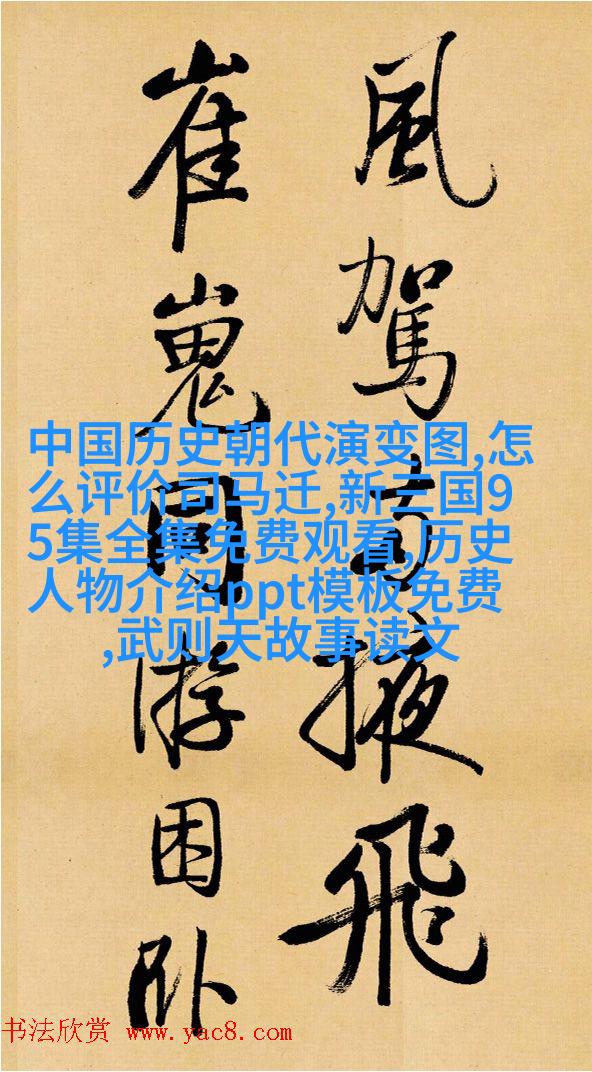 風駕掖飛
崔嵬同游困卧
中国历史朝代演变图,怎
么评价司马迁,新三国9
5集全集免费观看,历史
人物介绍ppt模板免费
,武则天故事读文
书法欣赏 www.yac8.com